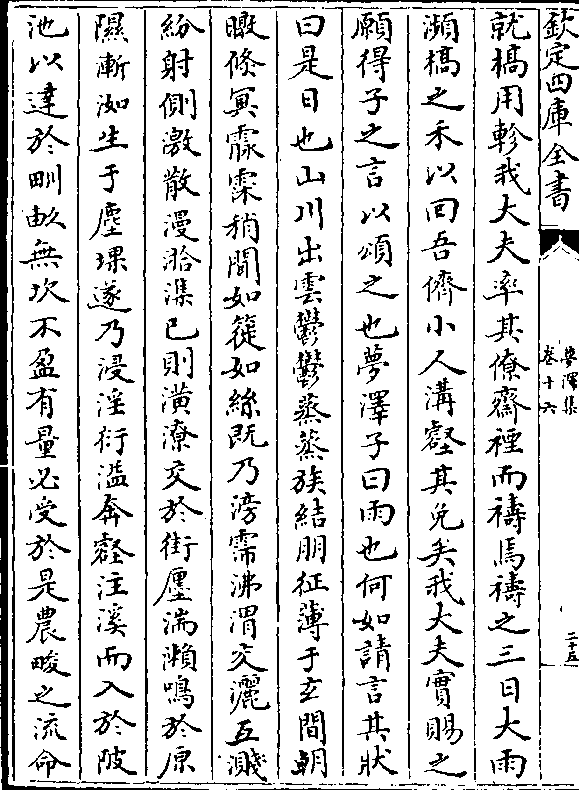 欽定四庫全書
夢澤集
卷十六
二十五
就槁用軫我大夫率其僚齋禋而禱焉禱之三日大雨
瀕槁之禾以回吾儕小人溝壑其免矣我大夫實賜之
願得子之言以頌之也夢澤子曰雨也何如請言其狀
曰是日也山川出雲鬱鬱蒸蒸族結朋征薄于玄間朝
暾倐冥霡霂稍間如簁如絲既乃滂霈沸渭交灑互濺
紛射側激散漫浛潗已則潢潦交於街㕓湍瀬鳴於原
隰漸洳生于塵堁遂乃浸淫衍溢奔壑注溪而入於陂
池以達於甽畝無坎不盈有量必受於是農畯之流命